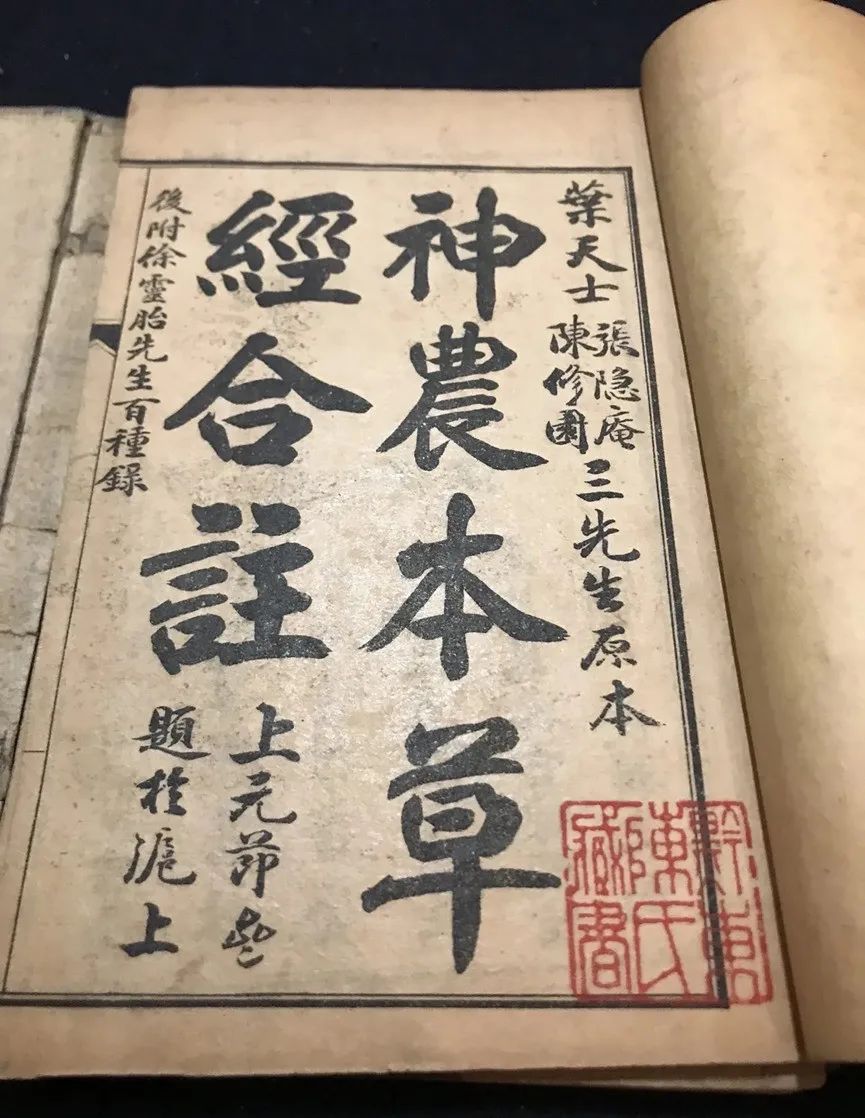 葉天士
張隐庵
陳修園
三先生原本
神農本草
經合註
上元節
題於滬上
後附徐靈胎先生百種錄
藏書